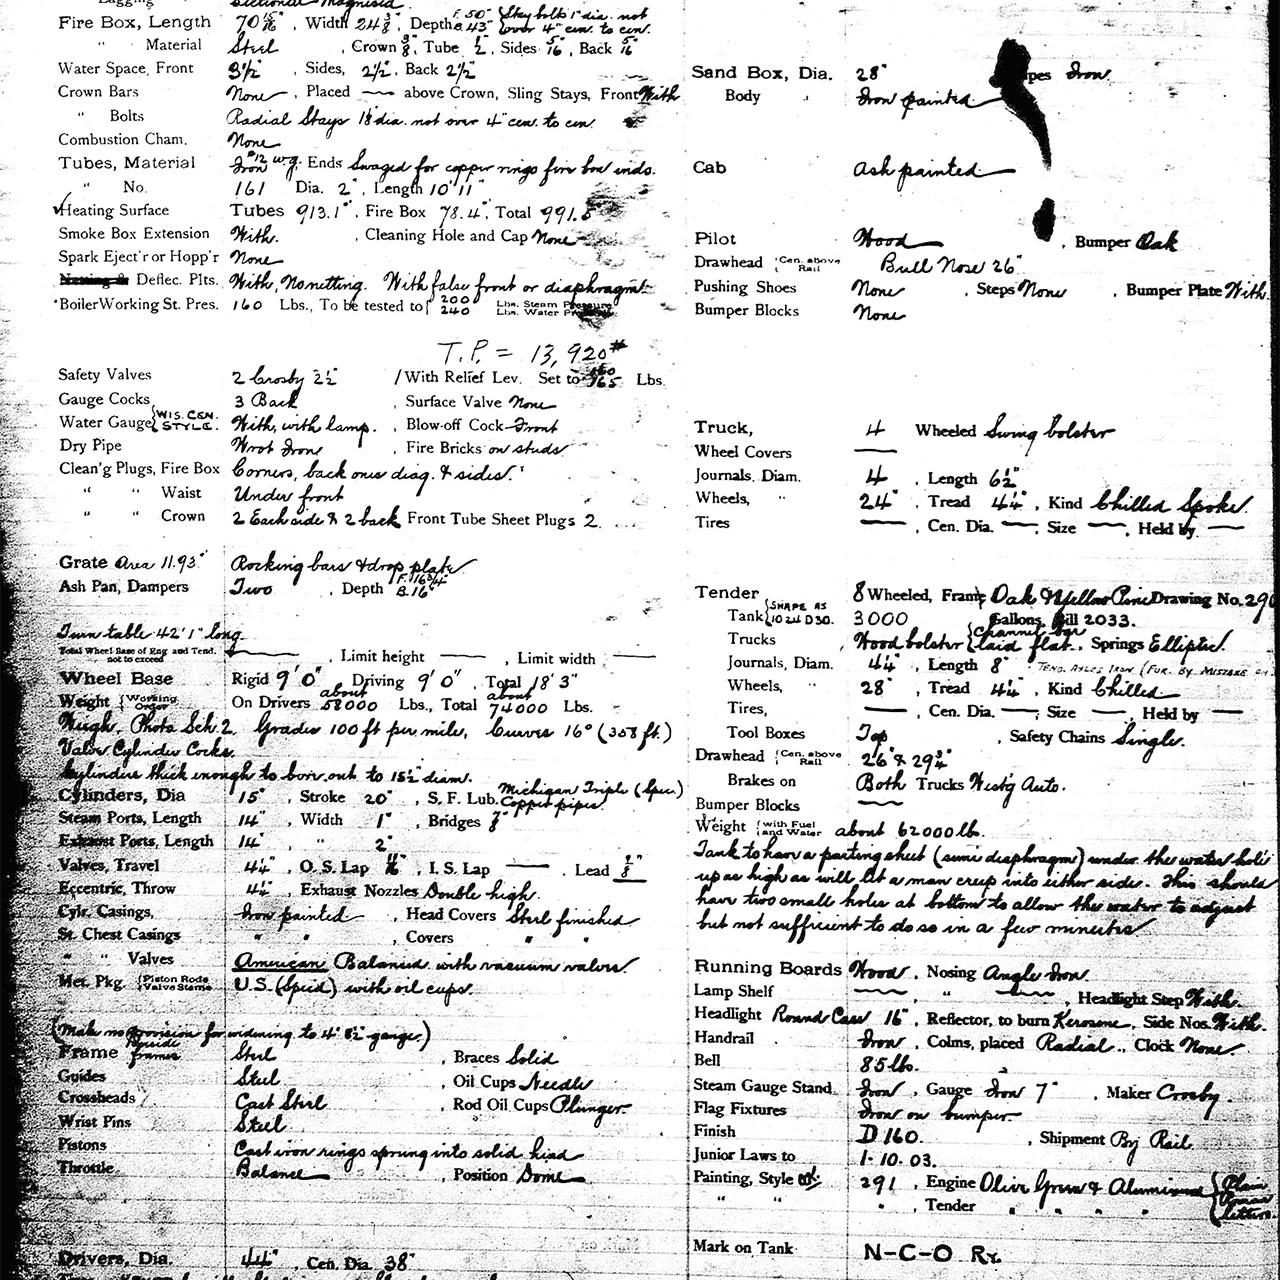 Lagging Sectional Magnesia
Fire Box, Length 70 5/16", Width 24 3/8, Depth F. 50" B. 43" {Stay bolts 1" dia. not over 4" cen. to cen.
" Material Steel, Crown 3/8, Tube 1/2, Sides 5/16, Back 5/16
Water Space, Front 3 1/2", Sides, 2 1/2", Back 2 1/2"
Crown Bars None, Placed — above Crown, Sling Stays, Front With
" Bolts Radial Stays 1 1/8 dia. not over 4" cen. to cen.
Combustion Cham. None
Tubes, Material Iron #12 w.g. Ends Swaged for copper rings fire box ends.
" No. 161 Dia. 2", Length 10' 11"
Heating Surface Tubes 913.1", Fire Box 78.4", Total 991.5
Smoke Box Extension With. , Cleaning Hole and Cap None
Spark Eject'r or Hopp'r None
Netting & Deflec. Plts. With, No netting. With false front or diaphragm.
Boiler Working St. Pres. 160 Lbs., To be tested to { 200 Lbs. Steam Pressure 240 Lbs. Water Pressure
T.P. = 13,920#
Safety Valves 2 Crosby 2 1/2" / With Relief Lev. Set to 160 165 Lbs.
Gauge Cocks 3 Back , Surface Valve None
Water Gauge {WIS. CEN. STYLE. With, with lamp. , Blow-off Cock Front
Dry Pipe Wrot Iron , Fire Bricks on studs
Clean'g Plugs, Fire Box Corners, back ones diag. & sides.
" " Waist Under front
" " Crown 2 Each side & 2 back Front Tube Sheet Plugs 2
Grate Area 11.93" Rocking bars & drop plate
Ash Pan, Dampers Two , Depth F. 16 3/4" B. 16"
Turn table 42' 1" long
Total Wheel Base of Eng and Tend. not to exceed — , Limit height — , Limit width —
Wheel Base Rigid 9' 0", Driving 9' 0", Total 18' 3"
Weight {Working Order On Drivers about 58000 Lbs., Total about 74000 Lbs.
Weigh. Photo Sch. 2. Grades 100 ft per mile, Curves 16° (358 ft.)
Valve Cylinder Cocks.
Cylinders thick enough to bore out to 15 1/2" diam.
Cylinders, Dia 15", Stroke 20", S. F. Lub. Michigan Triple (Spec.) Copper pipes
Steam Ports, Length 14", Width 1", Bridges 7/8"
Exhaust Ports, Length 14" , " 2"
Valves, Travel 4 1/4", O. S. Lap 11/16", I. S. Lap — . Lead
Eccentric, Throw 4 1/4", Exhaust Nozzles Double high.
Cylr. Casings, Iron painted , Head Covers Steel finished
St. Chest Casings " " , Covers " "
" " Valves American Balanced with vacuum valves.
Met. Pkg. {Piston Rods Valve Stems U.S. (Spec'd) with oil cups.
(Make no provision for widening to 4' 8 1/2" gauge.)
Frame Inside frames Steel , Braces Solid
Guides Steel , Oil Cups Needle
Crossheads Cast Steel , Rod Oil Cups Plunger
Wrist Pins Steel
Pistons Cast iron rings sprung into solid head
Throttle Balance , Position Dome
Drivers, Dia. 44", Cen. Dia. 38"
Sand Box, Dia. 28" Iron
Body " Iron painted
Cab Ash painted
Pilot Wood , Bumper Oak
Drawhead {Cen. above Rail Bull Nose 26"
Pushing Shoes None , Steps None , Bumper Plate With.
Bumper Blocks None
Truck, 4 Wheeled Swing bolster
Wheel Covers —
Journals, Diam. 4", Length 6 1/2"
Wheels, " 24", Tread 4 1/4", Kind Chilled Spoke.
Tires — , Cen. Dia. — ; Size — , Held by —
Tender 8 Wheeled, Frame Oak & Yellow Pine Drawing No. 290
Tank {SHAPE AS 1024 D30. 3000 Gallons, Bill 2033.
Trucks Wood bolster {Channel bar laid flat. , Springs Elliptic.
Journals, Diam. 4 1/4", Length 8" TEND. AXLES IRON (FUR. BY MISTAKE ON
Wheels, " 28", Tread 4 1/4", Kind Chilled
Tires, — , Cen. Dia. — ; Size — , Held by —
Tool Boxes Top , Safety Chains Single.
Drawhead {Cen. above Rail 26" & 29 3/4"
Brakes on Both Trucks West'g Auto.
Bumper Blocks —
Weight {with Fuel and Water about 62000 lb.
Tank to have a parting sheet (semi diaphragm) under the water hole
up as high as will let a man creep into either side. This should
have two small holes at bottom to allow the water to adjust
but not sufficient to do so in a few minutes
Running Boards Wood, Nosing Angle Iron
Lamp Shelf — , " — , Headlight Step With.
Headlight Round Case 16", Reflector, to burn Kerosene, Side Nos. With.
Handrail Iron, Colms, placed Radial., Clock None
Bell 85 lbs.
Steam Gauge Stand Iron, Gauge Iron 7" , Maker Crosby.
Flag Fixtures Iron on bumper
Finish D 160. , Shipment By Rail
Junior Laws to 1-10-03.
Painting, Style 291, Engine Olive Green & Aluminum {Plain Roman Letters.
" " " , Tender " " " "
Mark on Tank N-C-O Ry.